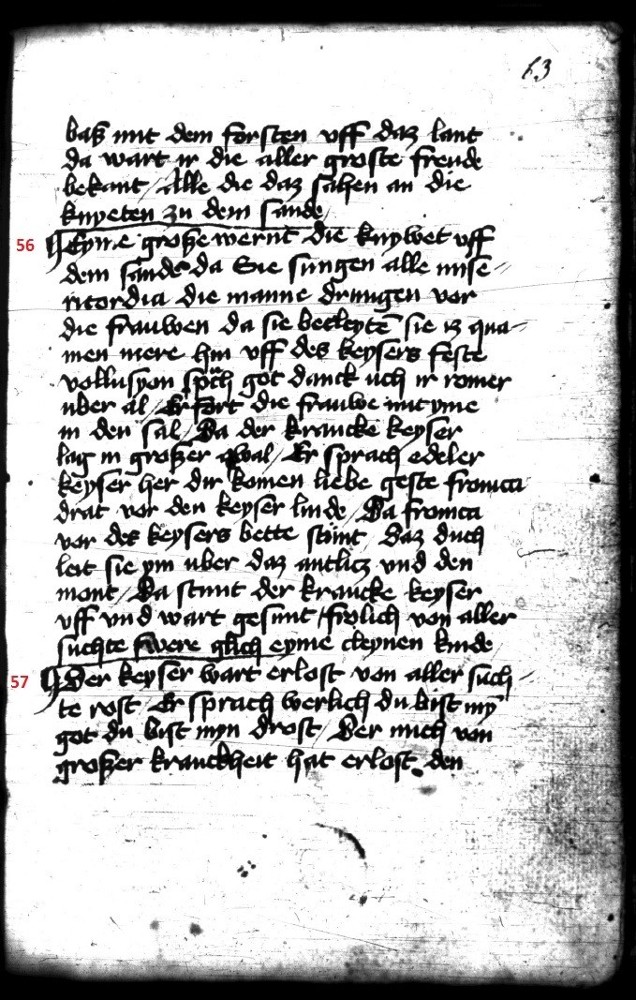 63
baß mit dem forsten vff daz lant
da wart ir die aller groste freude
bekant / Alle die daz sahen an die
knyeten zu dem sande
56 Eyne große wernt die knywet vff
dem sande da Sie sungen alle mise
ricordia die manne drungen vor
die frauwen da sie becleytē sie iz qua-
men mere hin vff des keysers feste
vollusyon sprach got danck uch ir romer
uber al / Er fort die frauwe mit yme
in den sal / Da der krancke keyser
lag in großer qwal / Er sprach edeler
keyser her dir komen liebe geste fronica
drat vor den keyser linde / Da fronica
vor des keysers bette stūnt / Daz duch
leit sie ym uber daz antlicz vnd den
mont / Da stunt der krancke keyser
vff vnd wart gesunt / frolich von aller
suchte swere glich eyme cleynen kinde
57 Der keyser wart erlost von aller such-
te rost / Er sprach werlich du bist mȳ
got du bist myn drost / Der mich von
großer kranckheit hat erlost . den